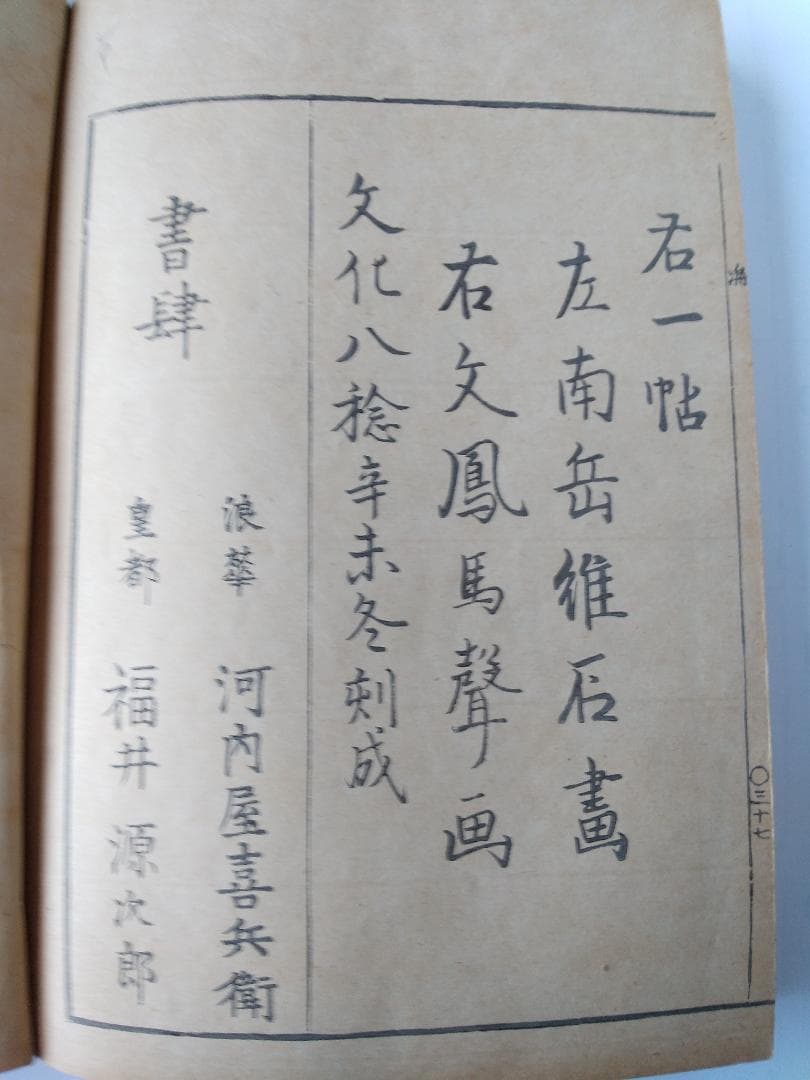 右一帖
左南岳維石畫
右文鳳馬聲画
文化八稔辛未冬刻成
書肆
浪華 河内屋喜兵衛
皇都 福井源次郎
〇三十七